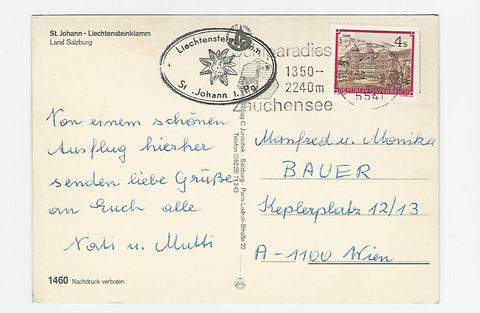 St. Johann - Liechtensteinklamm
Land Salzburg
Liechtensteinklamm
St. Johann i. Pg.
paradies
1350--
2240m
Zauchensee
5541
4s
REPUBLIK ÖSTERREICH
Von einem schönen
Ausflug hierher
senden liebe Grüße
an Euch alle
Nati u. Mutti
Manfred u. Monika
BAUER
Keplerplatz 12/13
A-1100 Wien
Verlag C. Jurischek - Salzburg - Paris-Lodron-Straße 22
1460 Nachdruck verboten